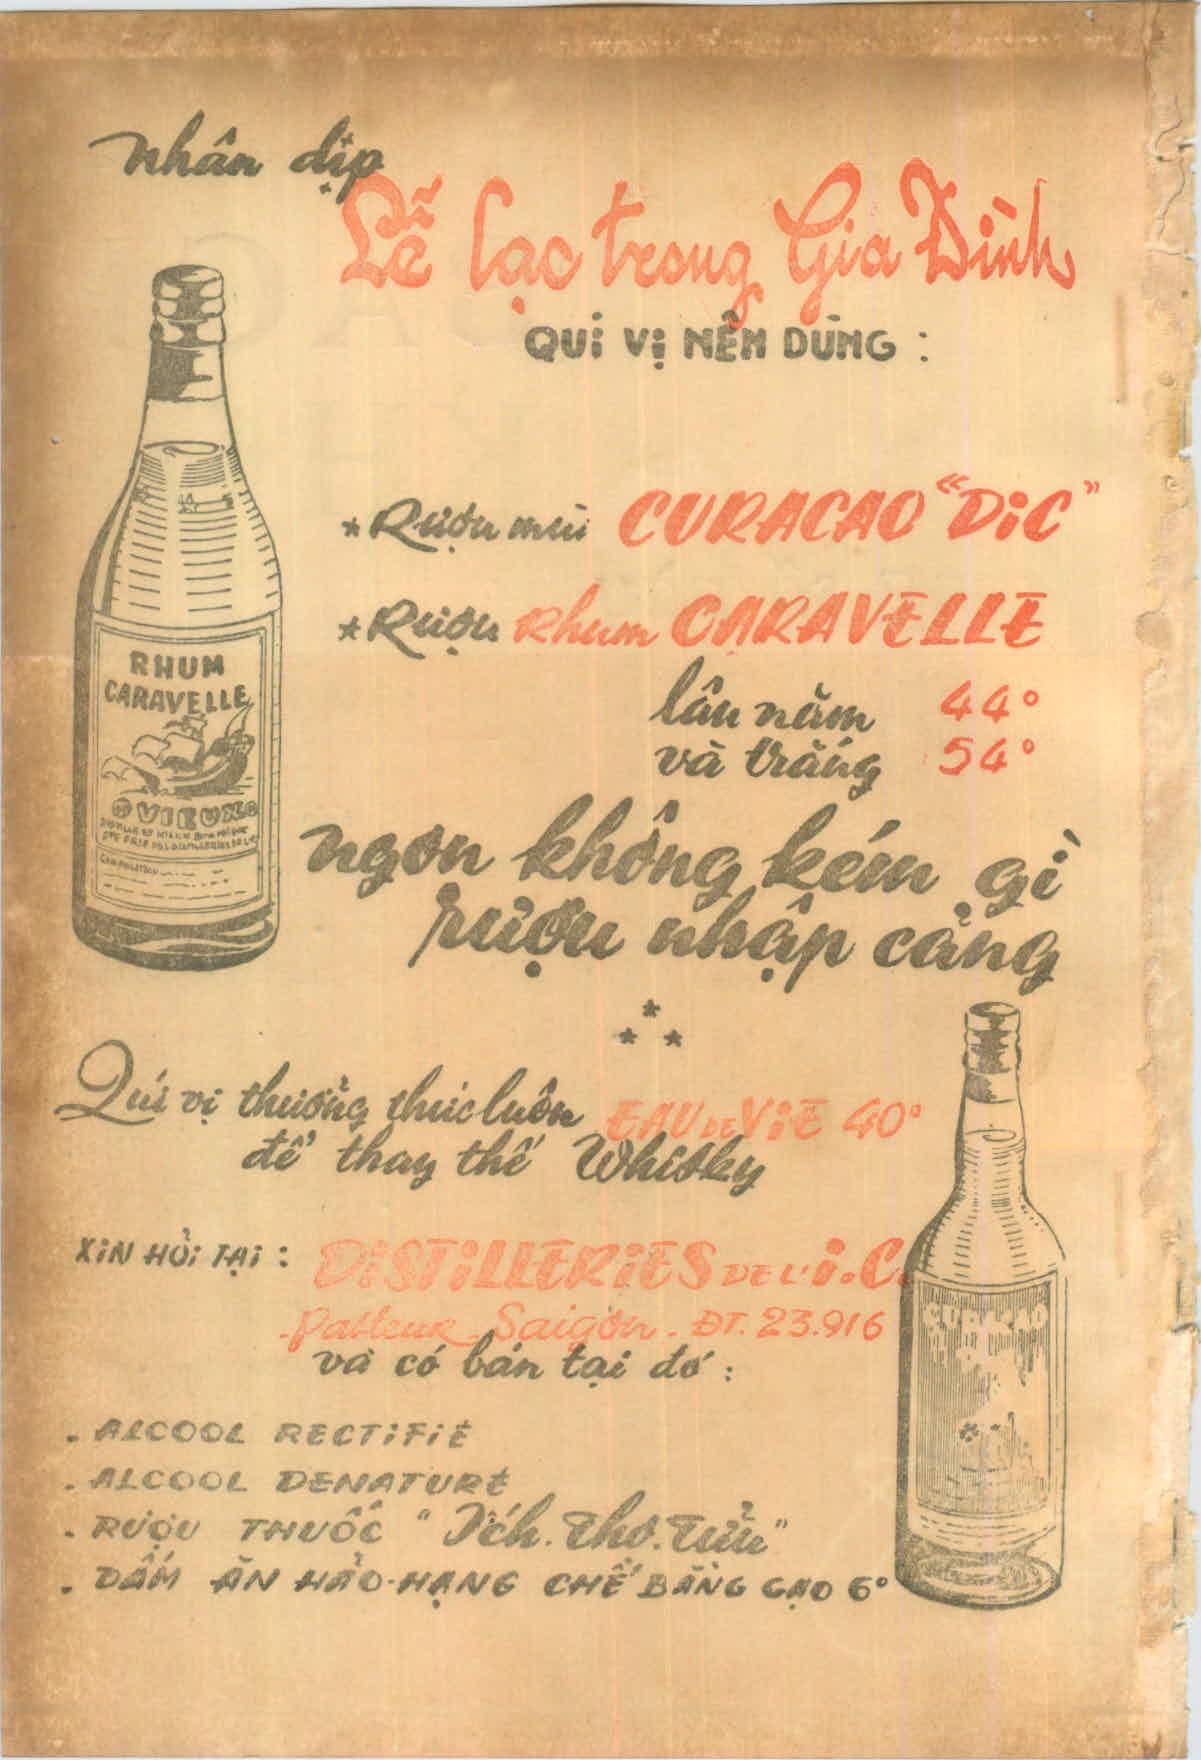 Nhân dịp
Lễ lạc trong Gia Đình
QUÍ VỊ NÊN DÙNG :
* Rượu mùi CURACAO "DIC"
* Rượu Rhum CARAVELLE
lâu năm 44°
và trắng 54°
ngon không kém gì
rượu nhập cảng
RHUM
CARAVELLE
VIEUX
Quí vị thưởng thức luôn EAU DE VIE 40°
để thay thế Whisky
XIN HỎI TẠI : DISTILLERIES DE L'I.C.
Pasteur - Saigon. ĐT. 23.916
và có bán tại đó :
. ALCOOL RECTIFIÉ
. ALCOOL DENATURÉ
. RƯỢU THUỐC "Ích. Thọ. Tửu"
. DẤM ĂN HẢO-HẠNG CHẾ BẰNG GẠO 6°
CURACAO